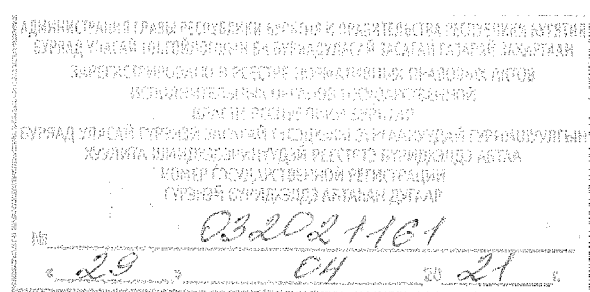 АДМИНИСТРАЦИЯ ГЛАВЫ РЕСПУБЛИКИ БУРЯТИЯ И ПРАВИТЕЛЬСТВА РЕСПУБЛИКИ БУРЯТИЯ
БУРЯАД УЛАСАЙ ЗАСАГАЙ ГАЗАРАЙ ЗАХИРГААН
ЗАРЕГИСТРИРОВАНО В РЕЕСТРЕ НОРМАТИВНЫХ ПРАВОВЫХ АКТОВ
ИСПОЛНИТЕЛЬНЫХ ОРГАНОВ ГОСУДАРСТВЕННОЙ
ВЛАСТИ РЕСПУБЛИКИ БУРЯТИЯ
БУРЯАД УЛАСАЙ ГҮРЭНЭЙ ЗАСАГАЙ
РЕЕСТРТЭ БҮРИДХЭЛДЭ АБТАА
НОМЕР ГОСУДАРСТВЕННОЙ РЕГИСТРАЦИИ
ГҮРЭНЭЙ БҮРИДХЭЛДЭ АБТАҺАН ДУГААР
№ 032021161
« 29 » 04 20 21 г.